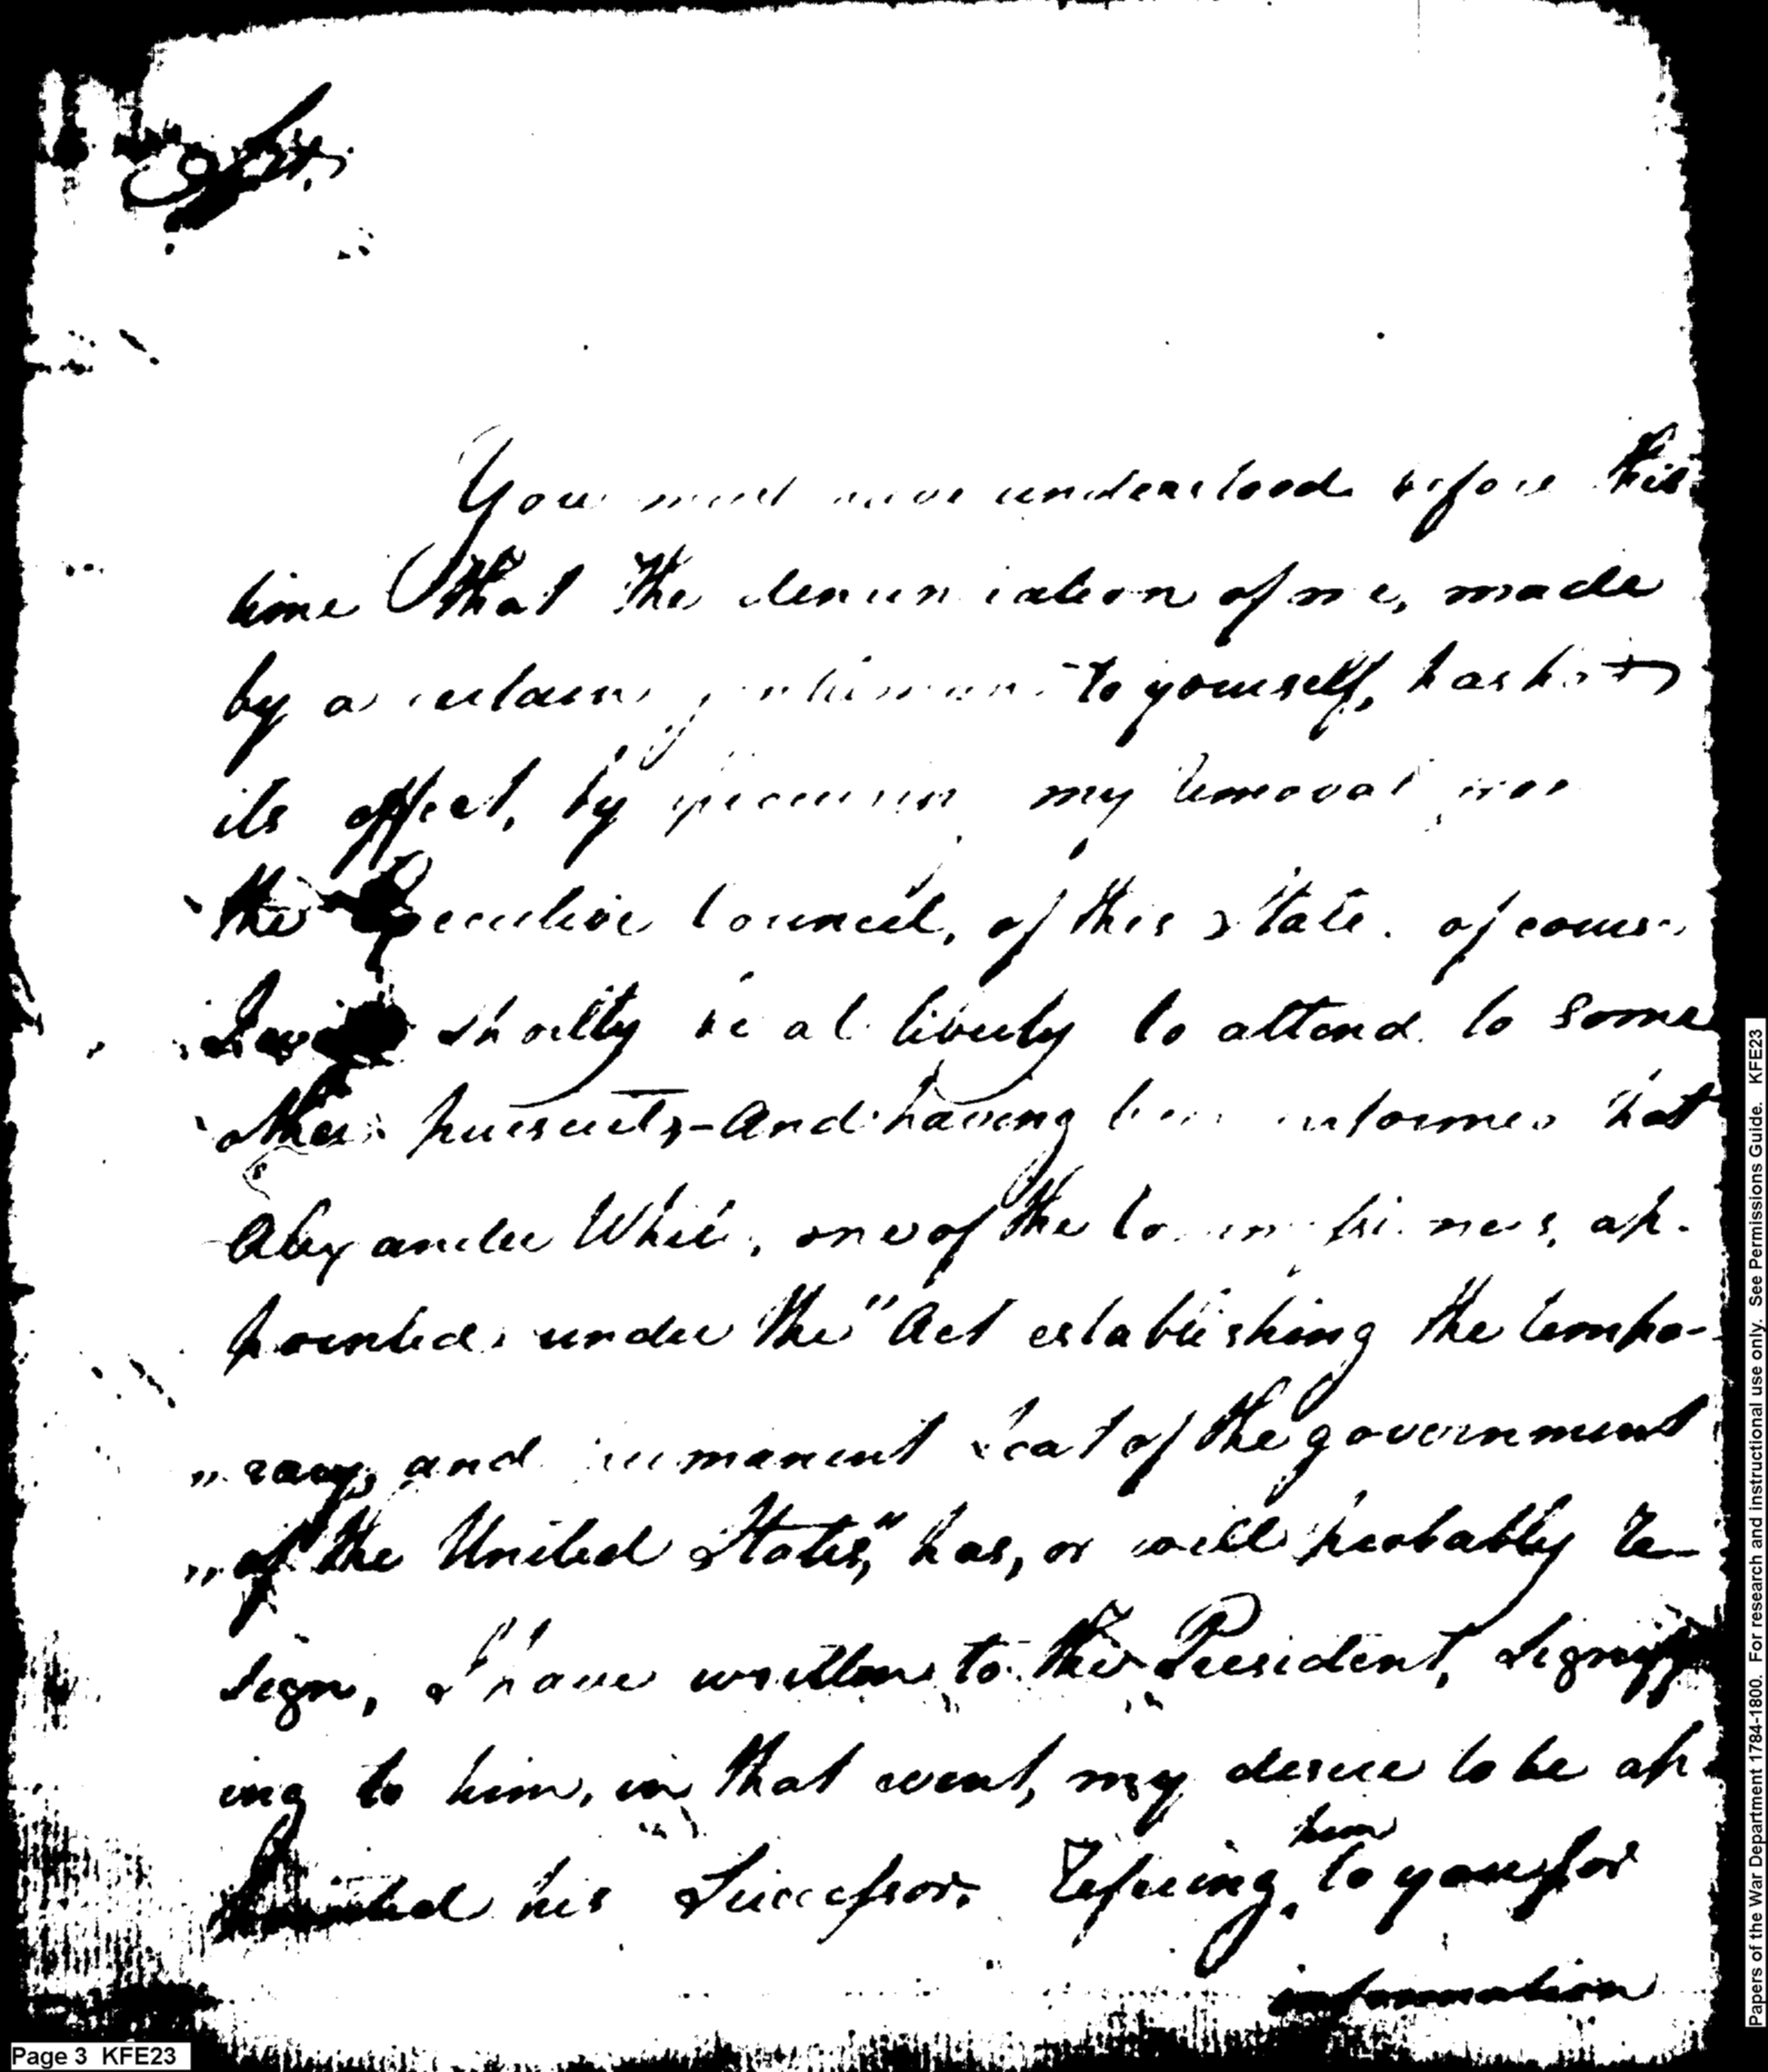 Copy
You must have understood before this
time that the denunciation of me, made
by a certain gentleman to yourself, has had
its effect, by procuring my removal from
the Executive Council, of this State. of course
I shortly be at liberty to attend to some
other pursuits, - And having been informed that
Alexander White, one of the Commissioners, ap-
pointed under the "Act establishing the tempo-
"rary and permanent Seat of the government
"of the United States," has, or will probably re-
sign, I have written to the President, signify
ing to him, in that event, my desire to be ap-
pointed his Successor. Refering him to you for
information
Page 3 KFE23
Papers of the War Department 1784-1800. For research and instructional use only. See Permissions Guide. KFE23